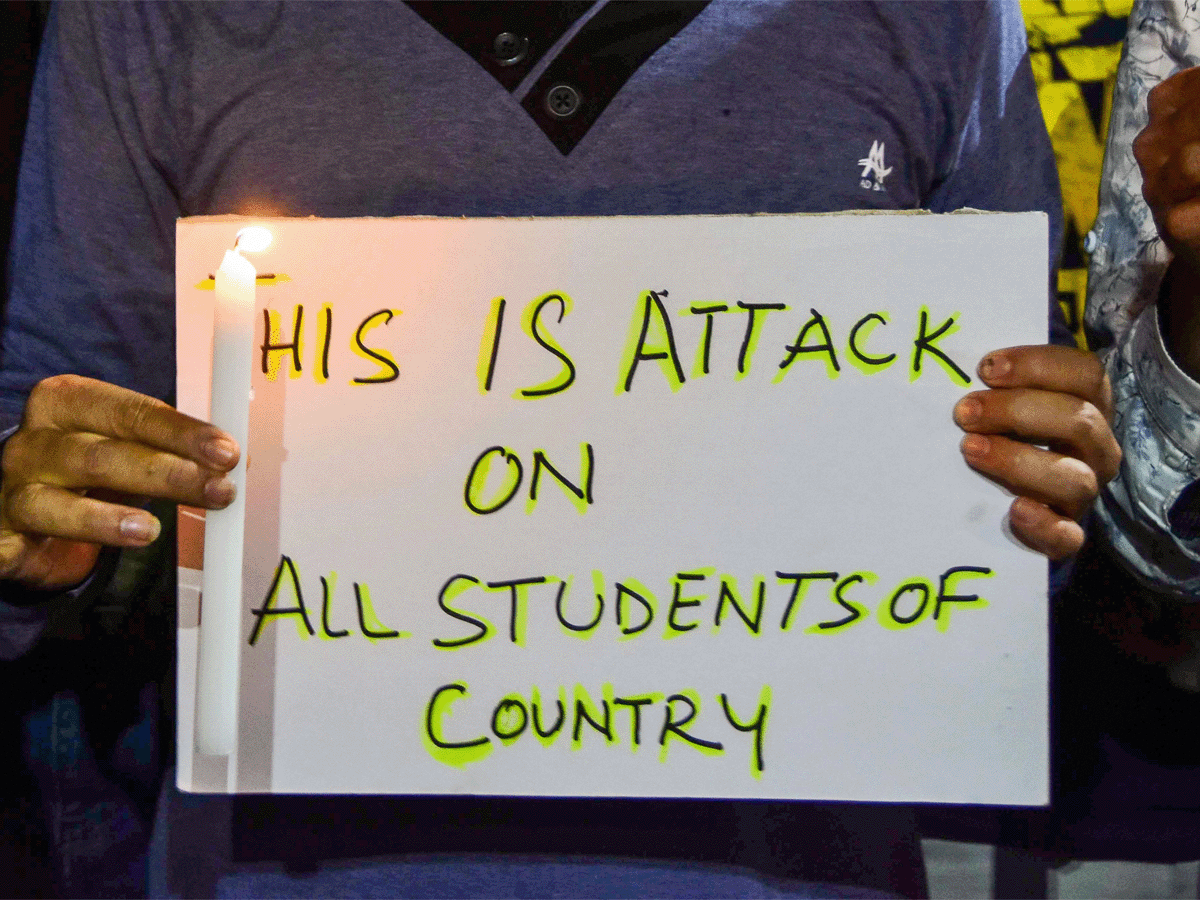 THIS IS ATTACK
ON
ALL STUDENTS OF
COUNTRY